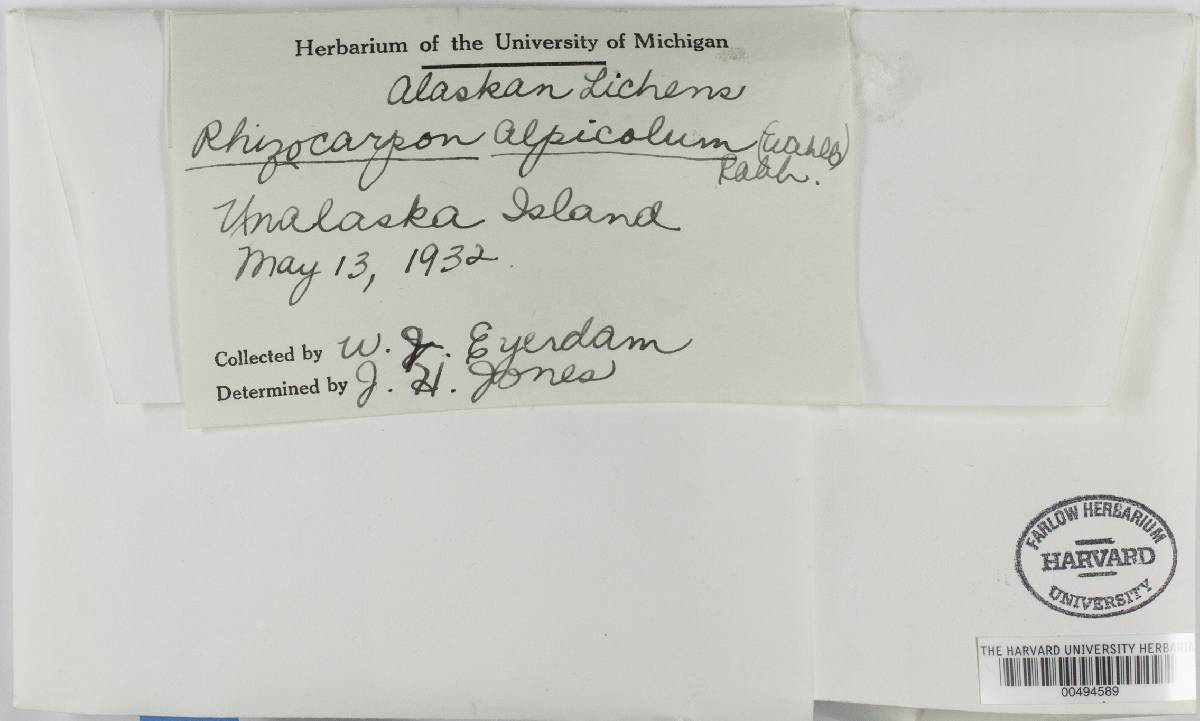 Herbarium of the University of Michigan
Alaskan Lichens
Rhizocarpon Alpicolum (Wahlb)
Rabh.
Unalaska Island
May 13, 1932
Collected by W. J. Eyerdam
Determined by J. H. Jones
FARLOW HERBARIUM
HARVARD
UNIVERSITY
THE HARVARD UNIVERSITY HERBARIA
00494589